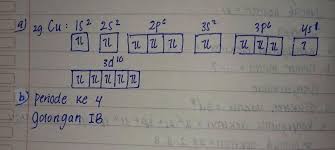 a) 29 Cu : 1s² 2s² 2p⁶ 3s² 3p⁶ 4s¹
⥮ ⥮ ⥮ ⥮ ⥮ ⥮ ⥮ ⥮ ⥮ 1
3d¹⁰
⥮ ⥮ ⥮ ⥮ ⥮
b) periode ke 4
golongan IB